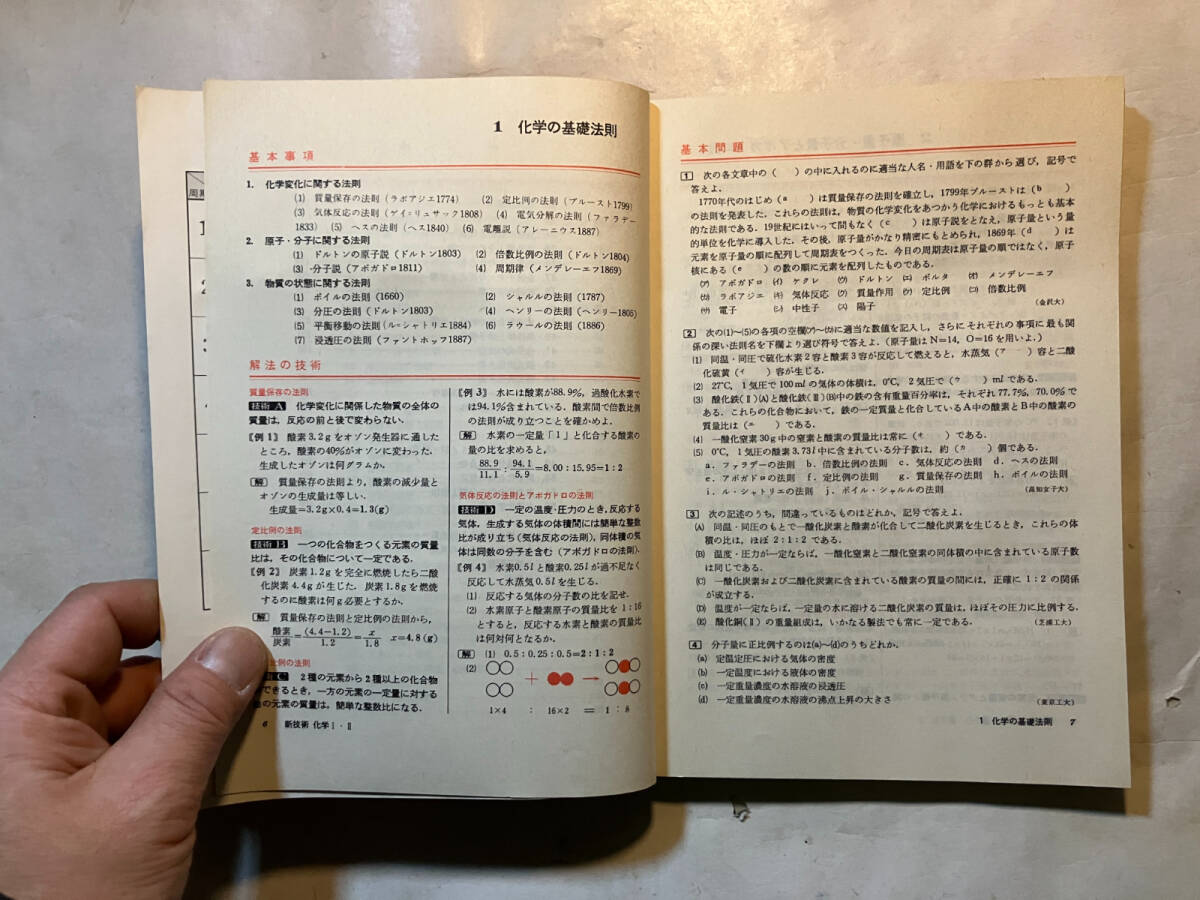 1 化学の基礎法則
基本事項
1. 化学変化に関する法則
(1) 質量保存の法則(ラボアジエ1774) (2) 定比例の法則(プルースト1799)
(3) 気体反応の法則(ゲイ=リュサック1808) (4) 電気分解の法則(ファラデー
1833) (5) ヘスの法則(ヘス1840) (6) 電離説(アレーニウス1887)
2. 原子・分子に関する法則
(1) ドルトンの原子説(ドルトン1803) (2) 倍数比例の法則(ドルトン1804)
(3) 分子説(アボガドロ1811) (4) 周期律(メンデレーエフ1869)
3. 物質の状態に関する法則
(1) ボイルの法則(1660) (2) シャルルの法則(1787)
(3) 分圧の法則(ドルトン1803) (4) ヘンリーの法則(ヘンリー1805)
(5) 平衡移動の法則(ル=シャトリエ1884) (6) ラウールの法則(1886)
(7) 浸透圧の法則(ファントホッフ1887)
解法の技術
質量保存の法則
技術A 化学変化に関係した物質の全体の
質量は,反応の前と後で変わらない.
〖例1〗 酸素3.2gをオゾン発生器に通した
ところ,酸素の40%がオゾンに変わった.
生成したオゾンは何グラムか.
解 質量保存の法則より,酸素の減少量と
オゾンの生成量は等しい.
生成量=3.2g×0.4=1.3(g)
定比例の法則
技術B 一つの化合物をつくる元素の質量
比は,その化合物について一定である.
〖例2〗 炭素1.2gを完全に燃焼したら二酸
化炭素4.4gが生じた.炭素1.8gを燃焼
するのに酸素は何g必要とするか.
解 質量保存の法則と定比例の法則から,
酸素/炭素=(4.4−1.2)/1.2=x/1.8 x=4.8(g)
比例の法則
C 2種の元素から2種以上の化合物
できるとき,一方の元素の一定量に対する
の元素の質量は,簡単な整数比になる.
6 新技術 化学Ⅰ・Ⅱ
〖例3〗 水には酸素が88.9%, 過酸化水素で
は94.1%含まれている.酸素間で倍数比例
の法則が成り立つことを確かめよ.
解 水素の一定量「1」と化合する酸素の
量の比を求めると,
88.9/11.1:94.1/5.9=8.00:15.95=1:2
気体反応の法則とアボガドロの法則
技術D 一定の温度・圧力のとき,反応する
気体,生成する気体の体積間には簡単な整数
比が成り立ち(気体反応の法則),同体積の気
体は同数の分子を含む(アボガドロの法則).
〖例4〗 水素0.5lと酸素0.25lが過不足なく
反応して水蒸気0.5lを生じる.
(1) 反応する気体の分子数の比を記せ.
(2) 水素原子と酸素原子の質量比を1:16
とすると,反応する水素と酸素の質量比
は何対何となるか.
解 (1) 0.5:0.25:0.5=2:1:2
(2)
+ →
1×4 : 16×2 = 1 : 8
基本問題
1 次の各文章中の( )の中に入れるのに適当な人名・用語を下の群から選び,記号で
答えよ.
1770年代のはじめ( a )は質量保存の法則を確立し,1799年プルーストは( b )
の法則を発表した.これらの法則は,物質の化学変化をあつかう化学におけるもっとも基本
的な法則である.19世紀にはいって間もなく( c )は原子説をとなえ,原子量という量
的単位を化学に導入した.その後,原子量がかなり精密にもとめられ,1869年( d )は
元素を原子量の順に配列して周期表をつくった.今日の周期表は原子量の順ではなく,原子
核にある( e )の数の順に元素を配列したものである.
(ア) アボガドロ (イ) ケクレ (ウ) ドルトン (エ) ボルタ (オ) メンデレーエフ
(カ) ラボアジエ (キ) 気体反応 (ク) 質量作用 (ケ) 定比例 (コ) 倍数比例
(サ) 電子 (シ) 中性子 (ス) 陽子 (金沢大)
2 次の(1)~(5)の各項の空欄(ア)~(カ)に適当な数値を記入し,さらにそれぞれの事項に最も関
係の深い法則名を下欄より選び符号で答えよ.(原子量はN=14, O=16を用いよ.)
(1) 同温・同圧で硫化水素2容と酸素3容が反応して燃えると,水蒸気( ア )容と二酸
化硫黄( イ )容が生じる.
(2) 27℃, 1気圧で100mlの気体の体積は,0℃, 2気圧で( ウ )mlである.
(3) 酸化鉄(Ⅱ)(A)と酸化鉄(Ⅲ)(B)中の鉄の含有重量百分率は,それぞれ77.7%, 70.0%で
ある.これらの化合物において,鉄の一定質量と化合しているA中の酸素とB中の酸素の
質量比は( エ )である.
(4) 一酸化窒素30g中の窒素と酸素の質量比は常に( オ )である.
(5) 0℃, 1気圧の酸素3.73l中に含まれている分子数は,約( カ )個である.
a. ファラデーの法則 b. 倍数比例の法則 c. 気体反応の法則 d. ヘスの法則
e. アボガドロの法則 f. 定比例の法則 g. 質量保存の法則 h. ボイルの法則
i. ル・シャトリエの法則 j. ボイル・シャルルの法則 (高知女子大)
3 次の記述のうち,間違っているものはどれか,記号で答えよ.
(A) 同温・同圧のもとで一酸化炭素と酸素が化合して二酸化炭素を生じるとき,これらの体
積の比は,ほぼ2:1:2である.
(B) 温度・圧力が一定ならば,一酸化窒素と二酸化窒素の同体積の中に含まれている原子数
は同じである.
(C) 一酸化炭素および二酸化炭素に含まれている酸素の質量の間には,正確に1:2の関係
が成立する.
(D) 温度が一定ならば,一定量の水に溶ける二酸化炭素の質量は,ほぼその圧力に比例する.
(E) 酸化銅(Ⅱ)の重量組成は,いかなる製法でも常に一定である. (芝浦工大)
4 分子量に正比例するのは(a)~(d)のうちどれか.
(a) 定温定圧における気体の密度
(b) 一定温度における液体の密度
(c) 一定重量濃度の水溶液の浸透圧
(d) 一定重量濃度の水溶液の沸点上昇の大きさ (東京工大)
1 化学の基礎法則 7